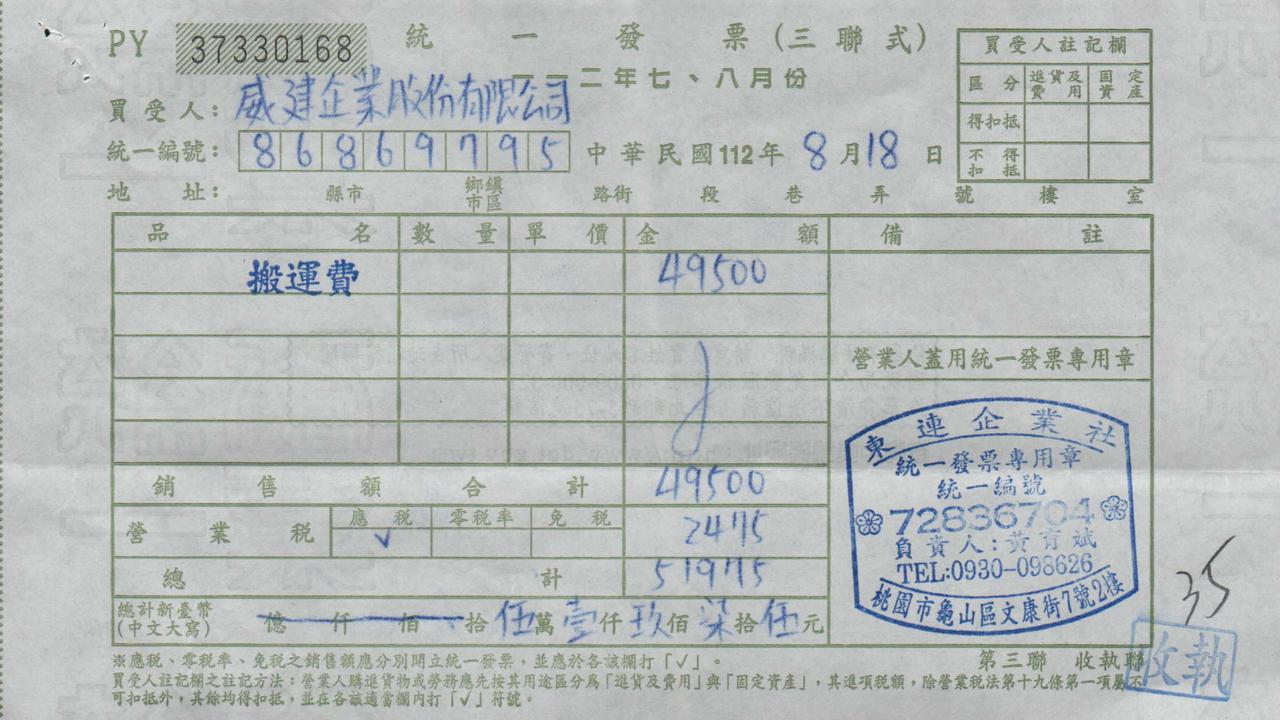 PY 37330168 統一發票(三聯式)
一一二年七、八月份
買受人: 威建企業股份有限公司
統一編號: 86869795 中華民國112年 8月18日
地址: 縣市 鄉鎮市區 路街 段 巷 弄 號 樓 室
買受人註記欄
區分 進貨及費用 固定資產
得扣抵
不得扣抵
品名 數量 單價 金額 備註
搬運費 49500
營業人蓋用統一發票專用章
銷售額合計 49500
營業稅 應稅 零稅率 免稅 2475
✓
總計 51975
總計新臺幣(中文大寫) 億 仟 佰 拾 伍萬壹仟玖佰柒拾伍元
東連企業社
統一發票專用章
統一編號
72836704
負責人:黃育斌
TEL:0930-098626
桃園市龜山區文康街7號2樓
35
※應稅、零稅率、免稅之銷售額應分別開立統一發票,並應於各該欄打「✓」。
第三聯 收執聯
收執
買受人註記欄之註記方法:營業人購進貨物或勞務應先按其用途區分為「進貨及費用」與「固定資產」,其進項稅額,除營業稅法第十九條第一項屬不
可扣抵外,其餘均得扣抵,並在各該適當欄內打「✓」符號。